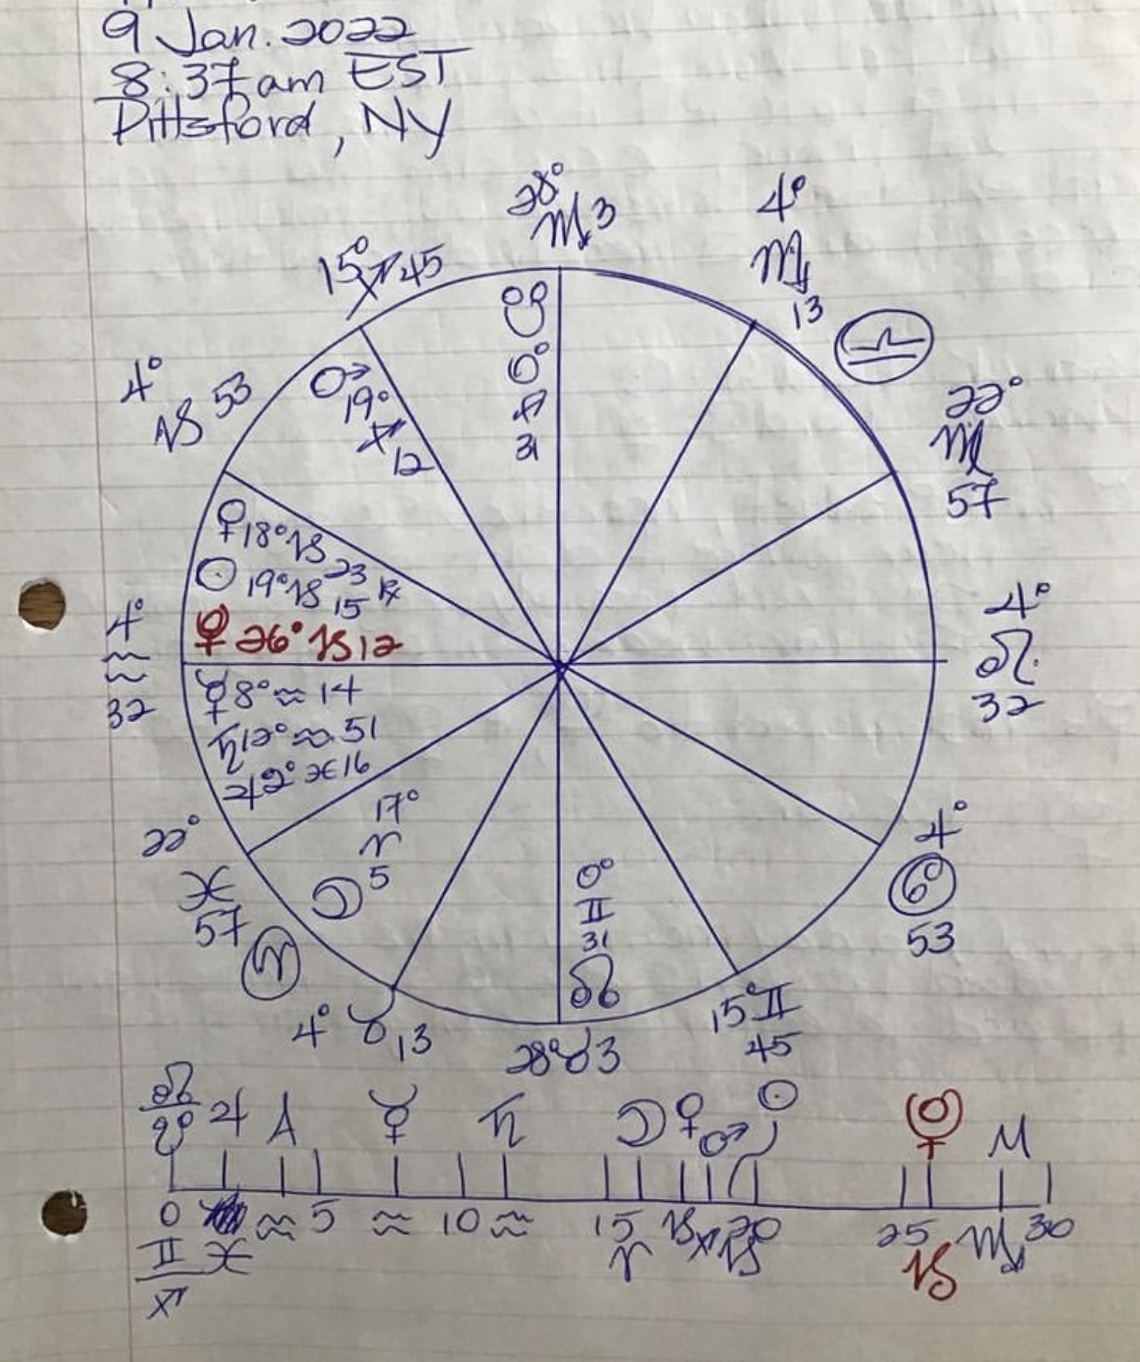 9 Jan. 2022
8:37am EST
Pittsford, NY
28°
♏ 3
4°
♏
13
♎
22°
♍
57
4°
♌
32
4°
♋
53
15° ♊
45
28° ♉ 3
4° ♉ 13
♈
22°
♓
57
4°
♒
32
4°
♑ 53
15° ♐ 45
☋
0°
♐
31
♂
19°
♐
12
♀ 18° ♑ 23 ℞
☉ 19° ♑ 15
♀ 26° ♑ 12
☿ 8° ♒ 14
♄ 12° ♒ 51
♃ 2° ♓ 16
17°
♈
☽ 5
0°
♊
31
☊
☊ ♃ A ☿ ♄ ☽ ♀ ♂ ☉ ♀ M
☋
0 ♒ 5 ♒ 10 ♒ 15 ♑ ♐ 20 25 ♏ 30
♊ ♓ ♈ ♑ ♑
♐